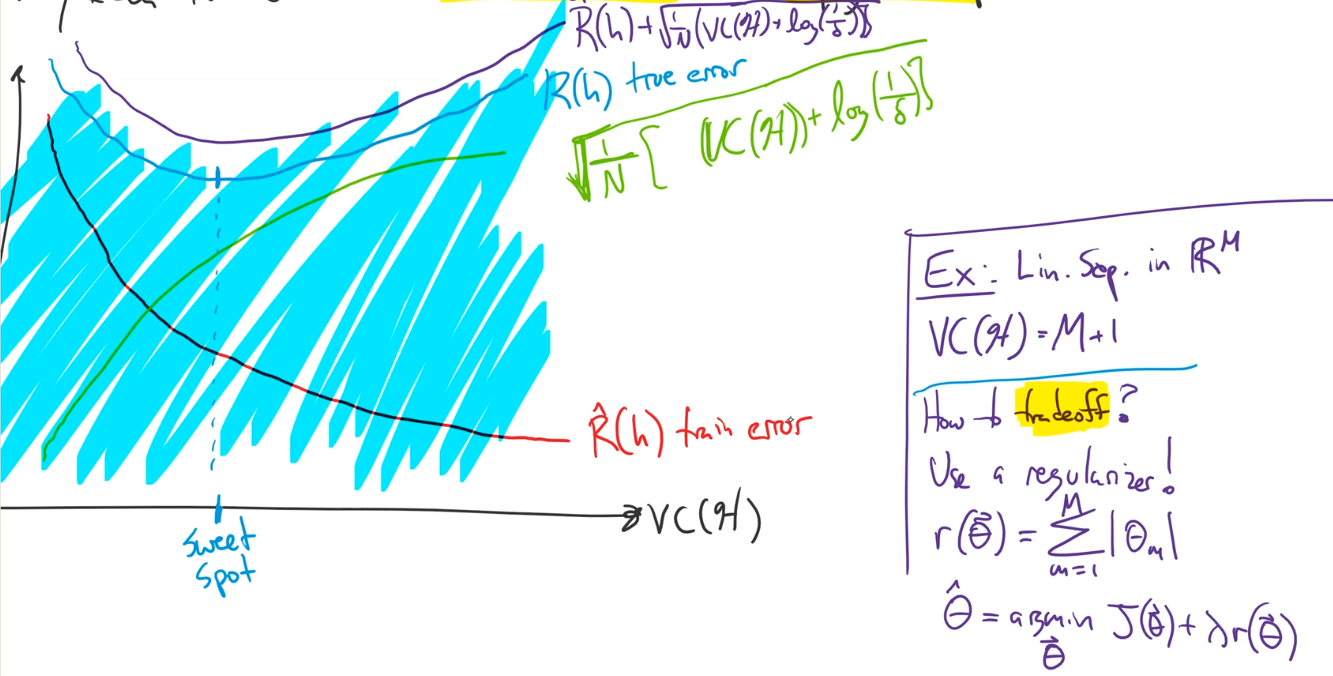 R̂(h) + √(1/N [VC(H) + log(1/δ)])
R(h) true error
√(1/N [ (VC(H)) + log(1/δ)])
R̂(h) train error
VC(H)
Sweet
Spot
Ex: Lin. Sep. in ℝ^M
VC(H) = M+1
How to tradeoff?
Use a regularizer!
r(θ⃗) = Σ_{m=1}^{M} |θ_m|
θ̂ = argmin_{θ⃗} J(θ⃗) + λr(θ⃗)